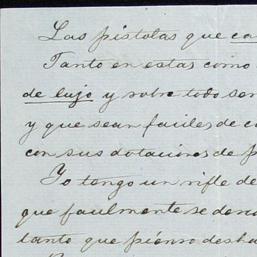 Las pistolas que ca
Tanto en estas como
de lujo y sobre todo ser
y que sean faciles de c
con sus dotaciones de p
Yo tengo un rifle de
que facilmente se desco
tanto que pienso desha